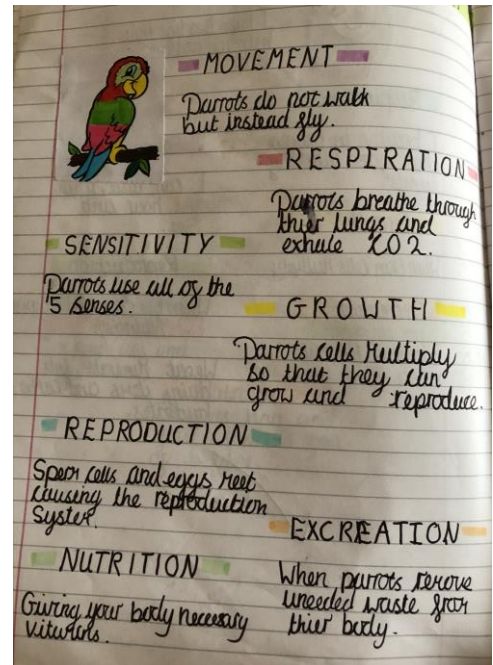 MOVEMENT
Parrots do not walk
but instead fly.
RESPIRATION
Parrots breathe through
thier lungs and
exhale CO2.
SENSITIVITY
Parrots use all of the
5 senses.
GROWTH
Parrots cells multiply
so that they can
grow and reproduce.
REPRODUCTION
Sperm cells and eggs meet
causing the reproduction
System.
EXCREATION
When parrots remove
uneeded waste from
thier body.
NUTRITION
Giving your body necessary